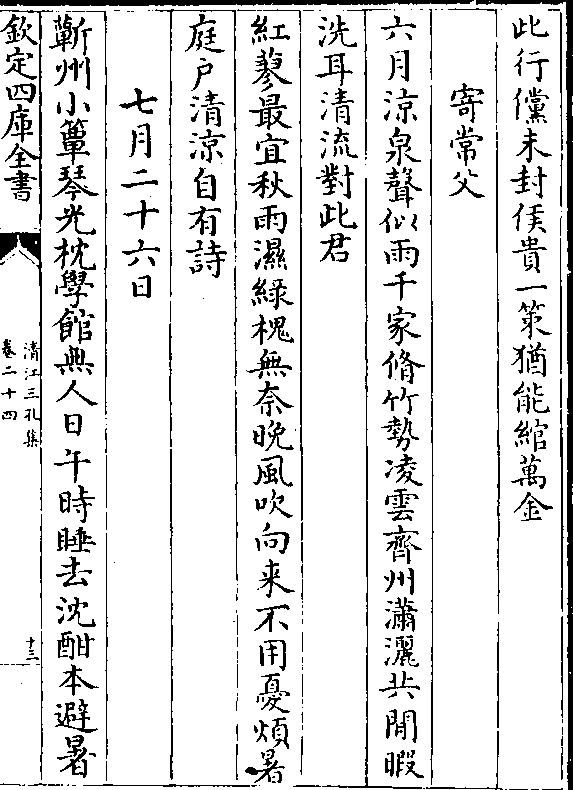 此行儻未封侯貴一策猶能綰萬金
寄常父
六月涼泉聲似雨千家脩竹勢凌雲齊州瀟灑共閒暇
洗耳清流對此君
紅蓼最宜秋雨濕綠槐無奈晚風吹向来不用憂煩暑
庭户清涼自有詩
七月二十六日
蘄州小簟琴光枕學館無人日午時睡去沈酣本避暑
欽定四庫全書
清江三孔集
卷二十四
十三